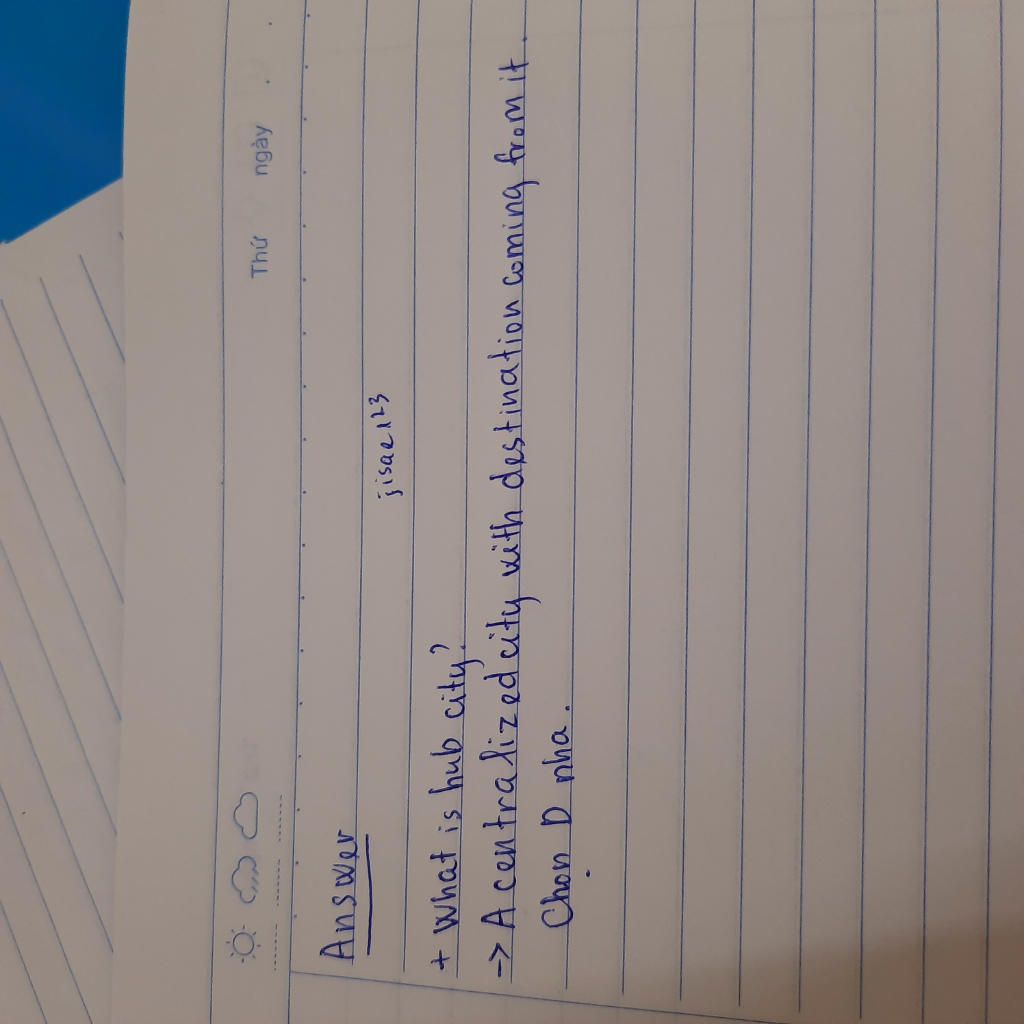 Thứ ngày
Answer
jisae123
+ What is hub city?
-> A centralized city with destination coming from it.
Chọn D nha.